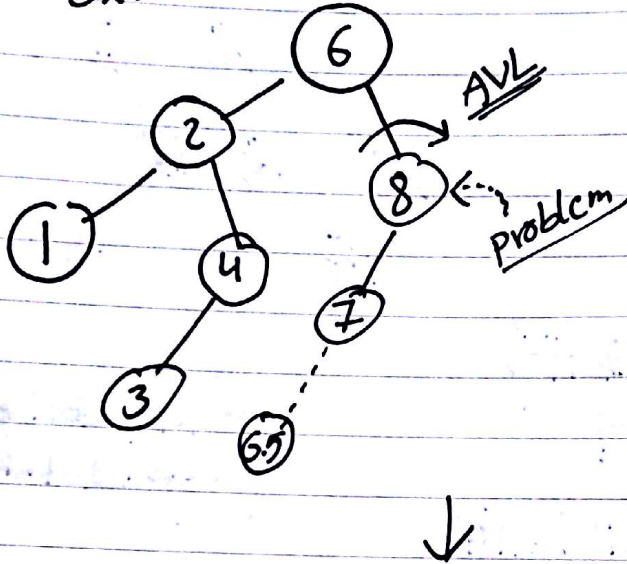 6
AVL
2
8
problem
1
4
7
3
6.5